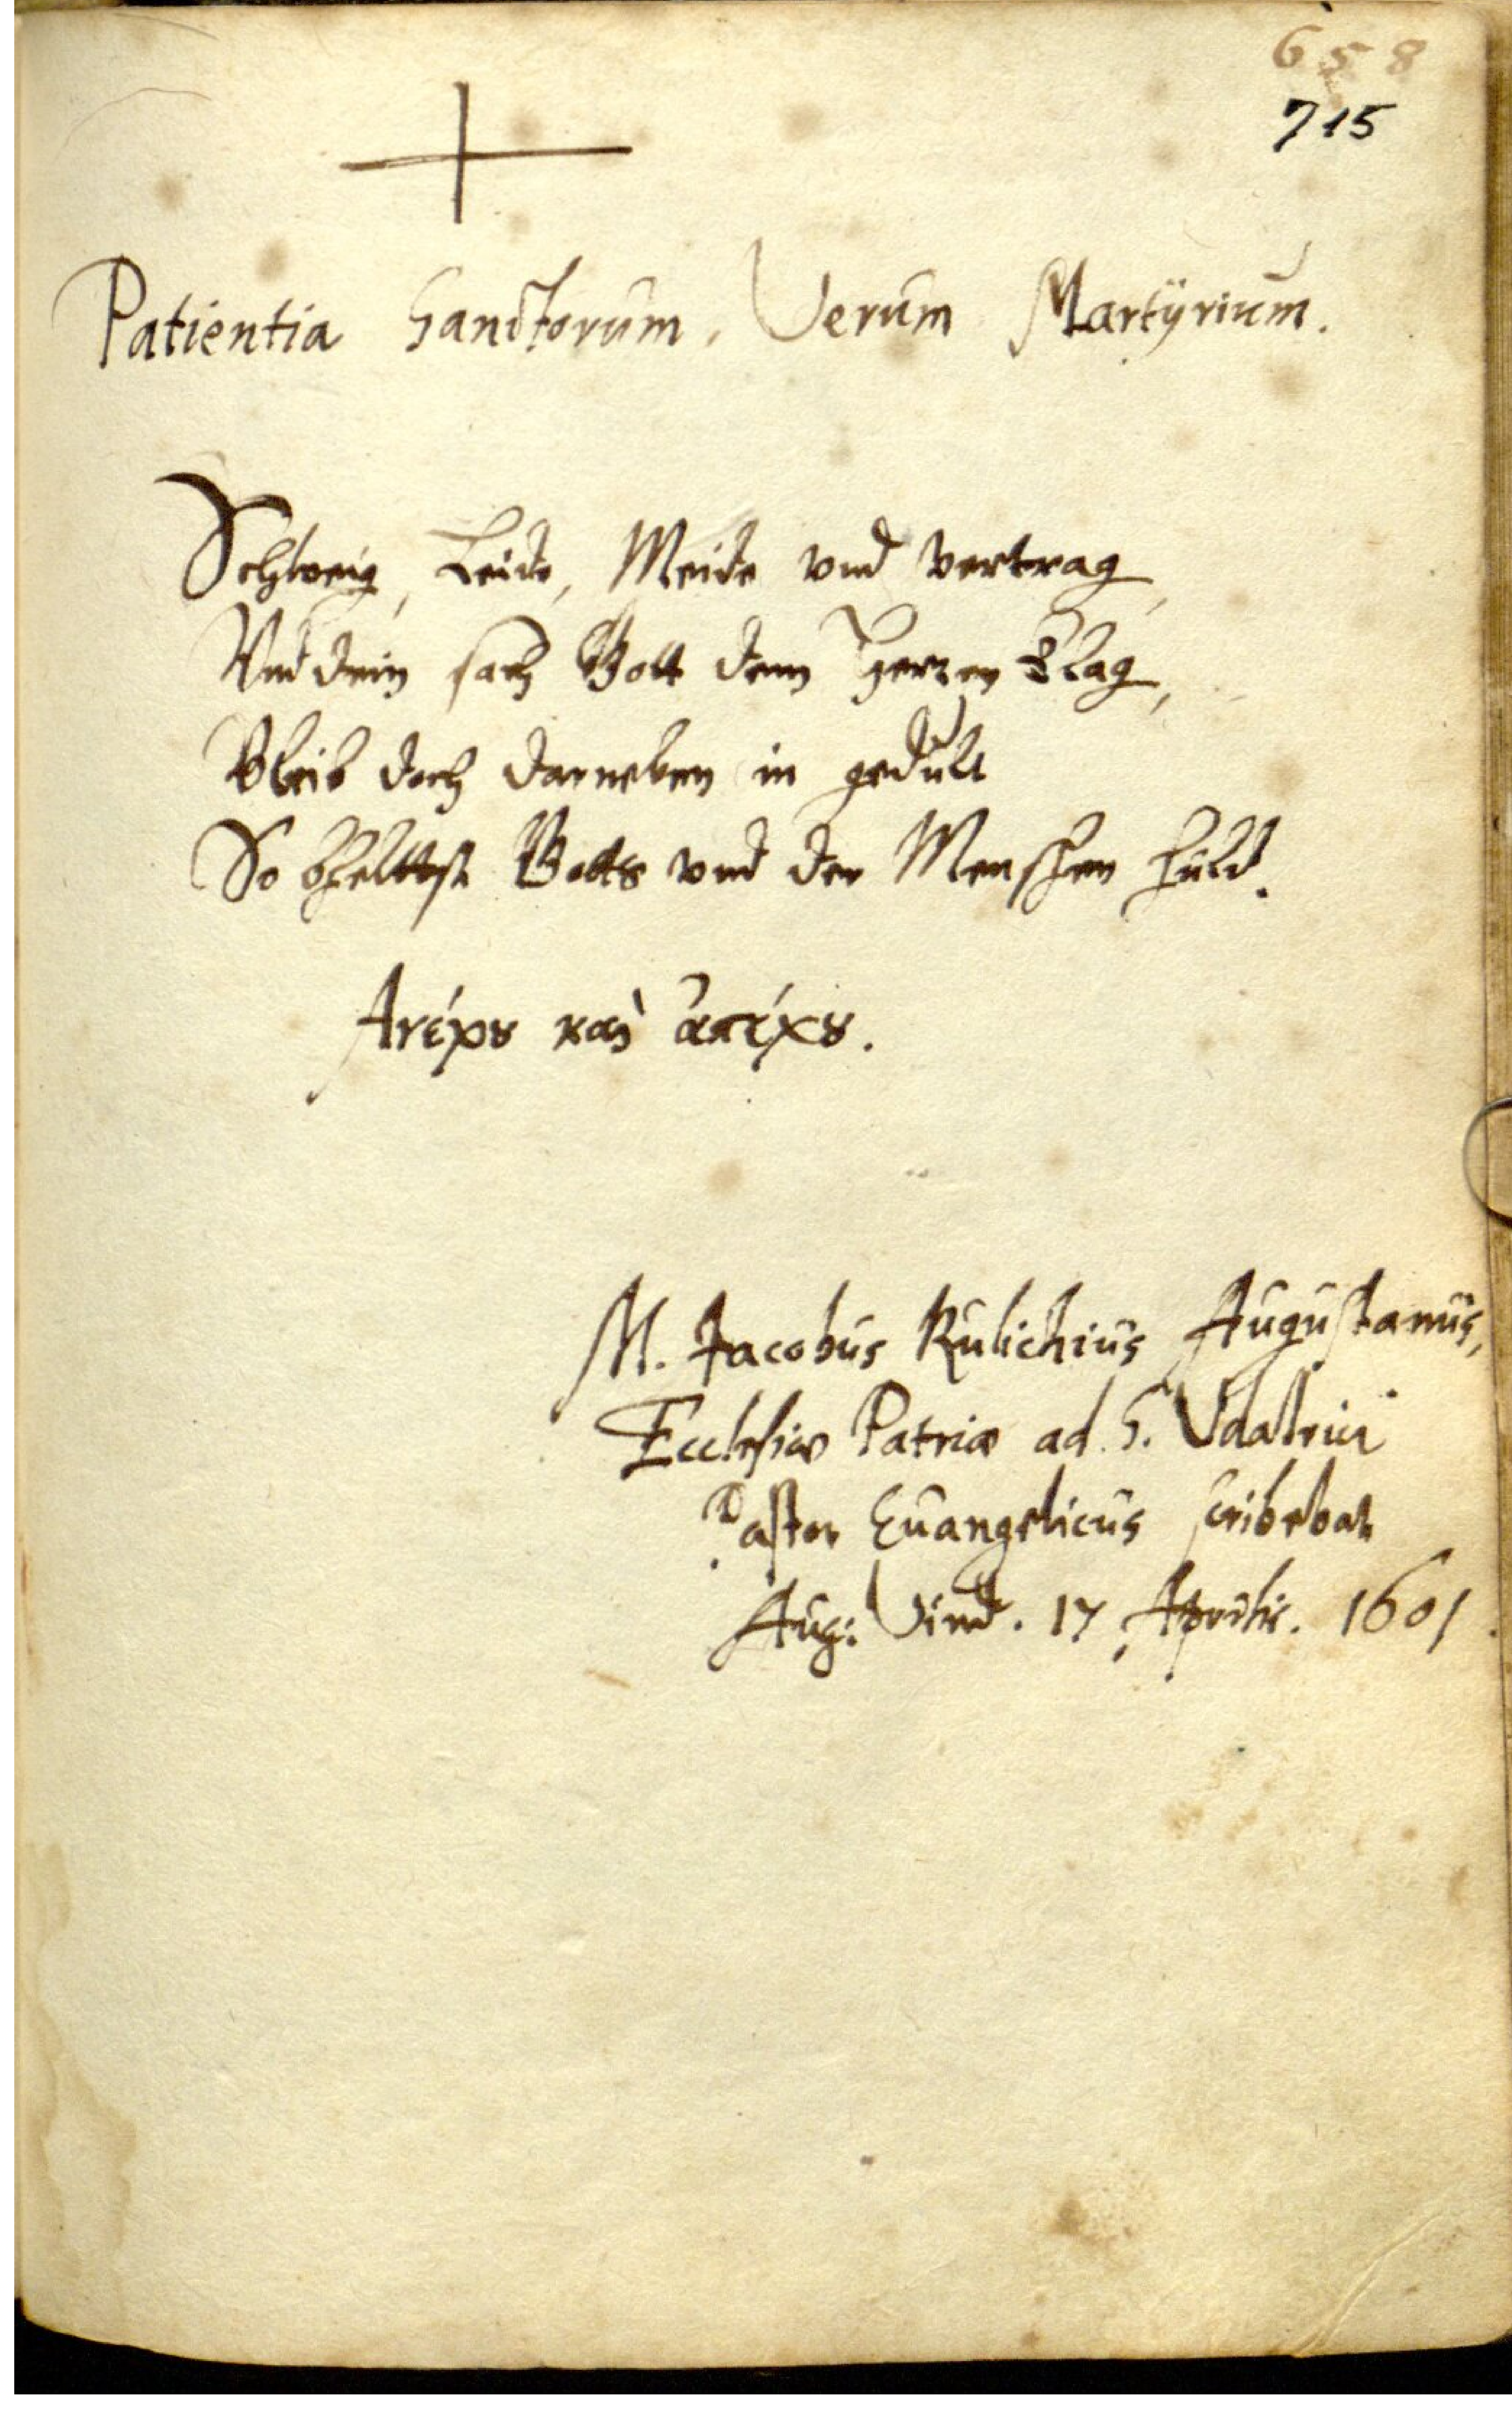 658
715
Patientia Sanctorum, Verum Martÿrium.
Schweig, Leide, Meide vnd vertrag,
Vnd dein sach Gott dem Herren klag,
Bleib doch darneben in gedult
So bheltest Gotts vnd der Menschen huld.
Ἀνέχου καὶ ἀπέχου.
M. Jacobus Rulichius Augustanus,
Ecclesiæ Patriæ ad S. Vdalrici
Pastor Euangelicus scribebat
Aug: Vind. 17 Aprilis. 1601.